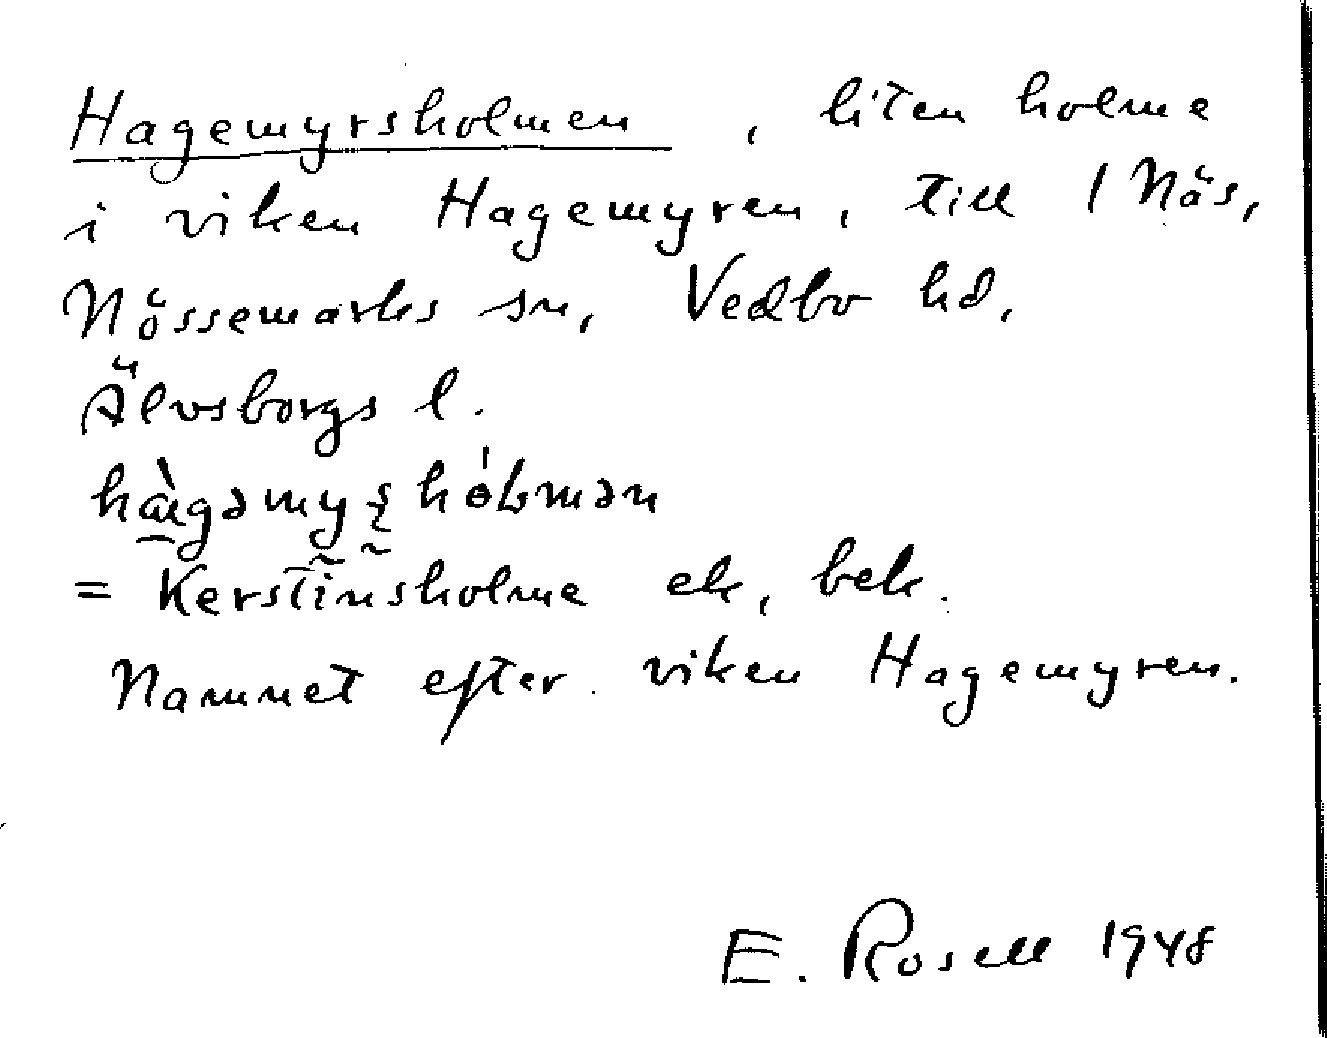 Hagemyrsholmen, liten holme
i viken Hagemyren, till 1 Näs,
Nössemarks sn, Vedbo hd,
Älvsborgs l.
= Kerstinsholme ek, bek.
Namnet efter viken Hagemyren.
E. Rosell 1948